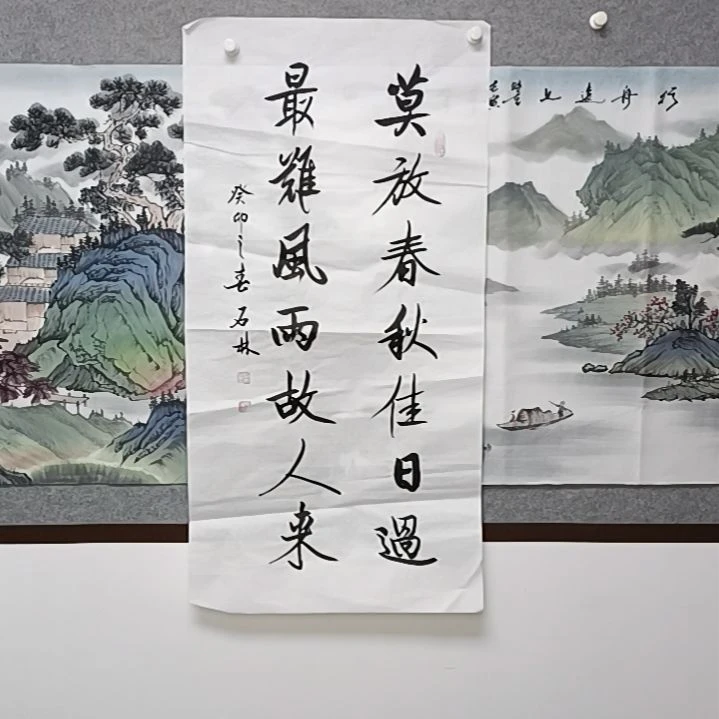 莫放春秋佳日過
最難風雨故人来
癸卯之春 石林